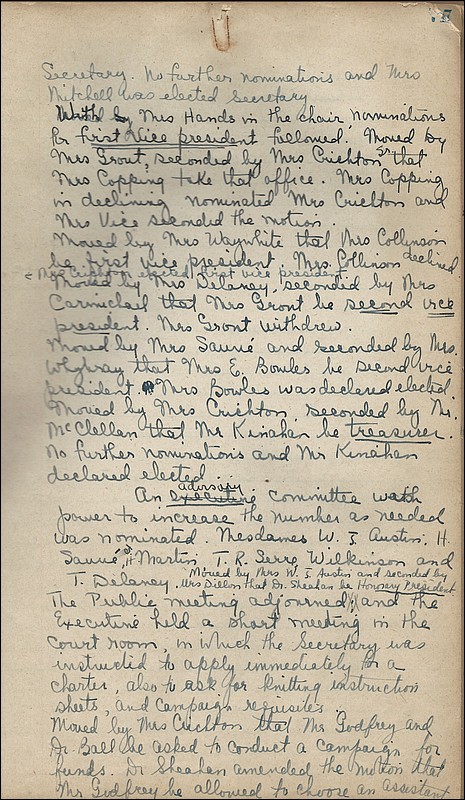 7
Secretary. No further nominations and Mrs
Mitchell was elected secretary
With Mrs Hands in the chair nominations
for first vice president followed. Moved by
Mrs Grout, seconded by Mrs Crichton Sr that
Mrs Copping take that office. Mrs Copping
in declining nominated Mrs Crichton and
Mrs Vice seconded the motion.
Moved by Mrs Waywhite that Mrs Collinson
be first vice president. Mrs. Collinson declined.
← Mrs Crichton elected first vice president.
Moved by Mrs Delaney, seconded by Mrs
Carmichael that Mrs Grout be second vice
president. Mrs Grout withdrew.
Moved by Mrs Sauvé and seconded by Mrs.
that Mrs E. Bowles be second vice
president. Mrs Bowles was declared elected.
Moved by Mrs Crichton, seconded by Mr.
McClellan that Mr Kinahan be treasurer.
No further nominations and Mr Kinahan
declared elected
An executive advisory committee with
power to increase the number as needed
was nominated. Mesdames W. J. Austin, H.
Sauvé, H Martin, T. R. Serre, Wilkinson and
T. Delaney. Moved by Mrs W. J. Austin and seconded by
Mrs Dillon that Dr. Sheahan be Honorary President
The Public meeting adjourned and the
Executive held a short meeting in the
court room, in which the Secretary was
instructed to apply immediately for a
charter, also to ask for knitting instruction
sheets, and campaign requisites.
Moved by Mrs Crichton that Mr Godfrey and
Dr. Ball be asked to conduct a campaign for
funds. Dr Sheahan amended the motion that
Mr Godfrey be allowed to choose an assistant